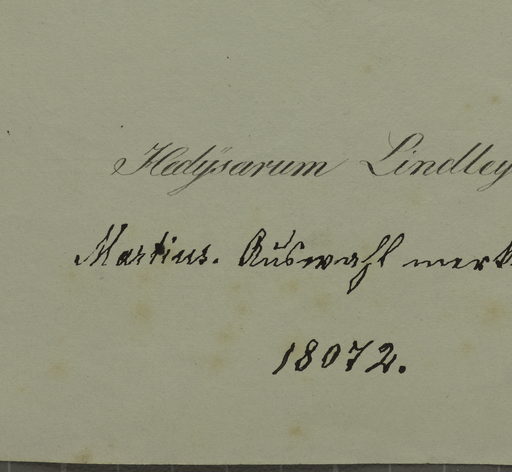 Hedÿsarum Lindley
Martius. Auswahl merk
18072.